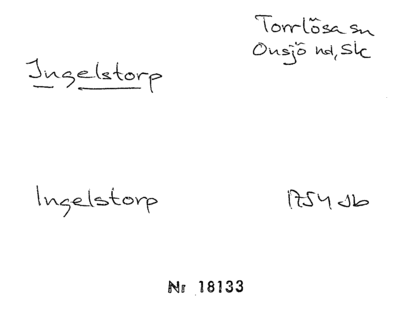 Torrlösa sn
Onsjö hd, Sk
Ingelstorp
Ingelstorp 1754 Jb
Nr 18133